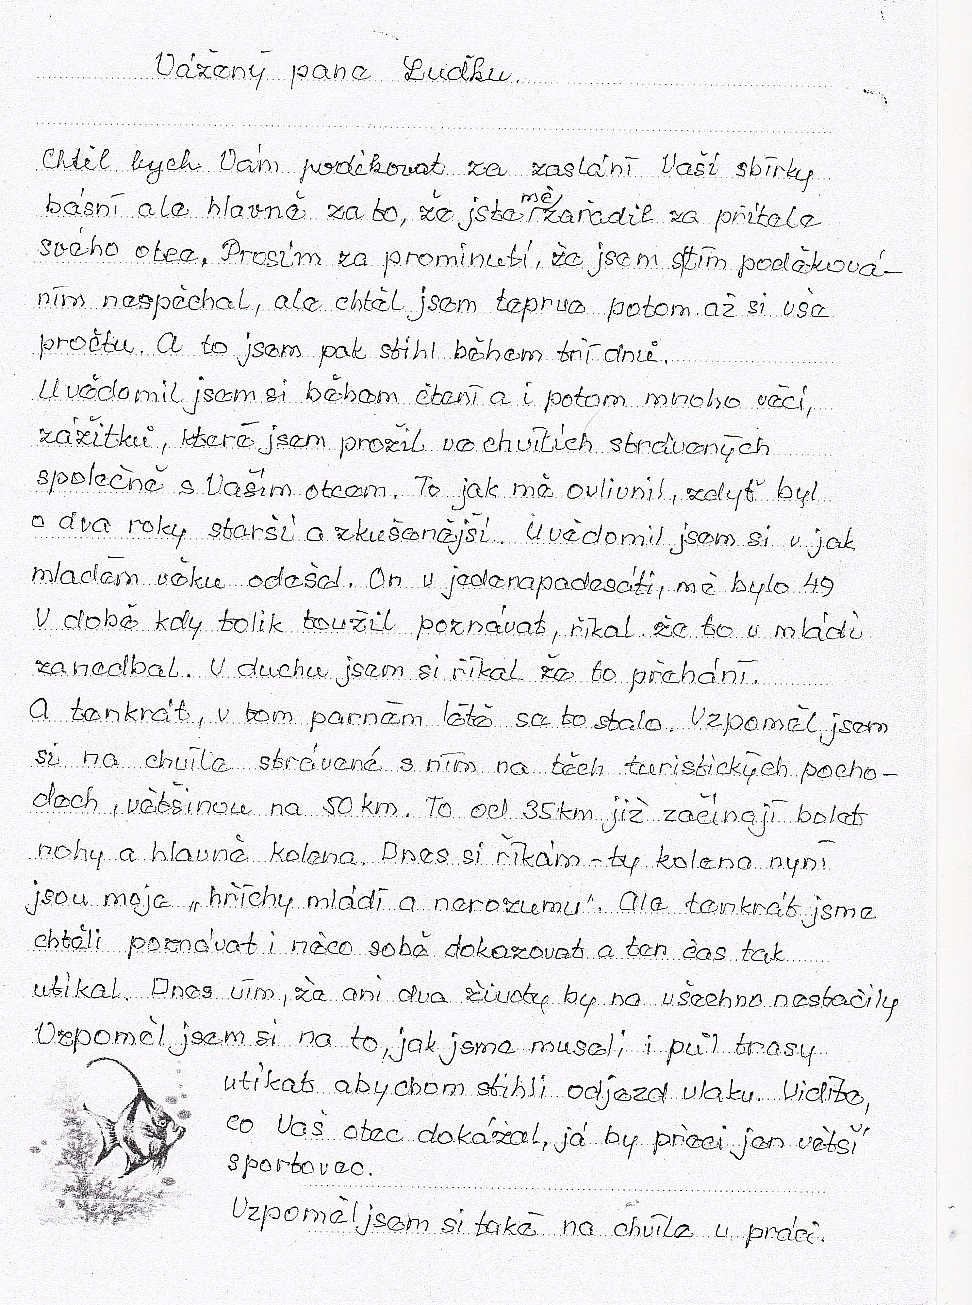 Vážený pane Luďku.
Chtěl bych Vám poděkovat za zaslání Vaší sbírky
básní ale hlavně za to, že jste mě zařadil za přítele
svého otce. Prosím za prominutí, že jsem s tím poděková-
ním nespěchal, ale chtěl jsem teprve potom až si vše
pročtu. A to jsem pak stihl během tří dnů.
Uvědomil jsem si během čtení a i potom mnoho věcí,
zážitků, které jsem prožil ve chvílích strávených
společně s Vaším otcem. To jak mě ovlivnil, vždyť byl
o dva roky starší a zkušenější. Uvědomil jsem si v jak
mladém věku odešel. On v jedenapadesáti, mě bylo 49
V době kdy tolik toužil poznávat, říkal že to v mládí
zanedbal. V duchu jsem si říkal že to přehání.
A tenkrát, v tom parném létě se to stalo. Vzpoměl jsem
si na chvíle strávené s ním na těch turistických pocho-
dech, většinou na 50 km. To od 35 km již začínají bolet
nohy a hlavně kolena. Dnes si říkám - ty kolena nyní
jsou moje „hříchy mládí a nerozumu". Ale tenkrát jsme
chtěli poznávat i něco sobě dokazovat a ten čas tak
utíkal. Dnes vím, že ani dva životy by na všechno nestačily
Vzpoměl jsem si na to, jak jsme museli i půl trasy
utíkat abychom stihli odjezd vlaku. Vidíte,
co Váš otec dokázal, já by přeci jen větší
sportovec.
Vzpoměl jsem si také na chvíle v práci.